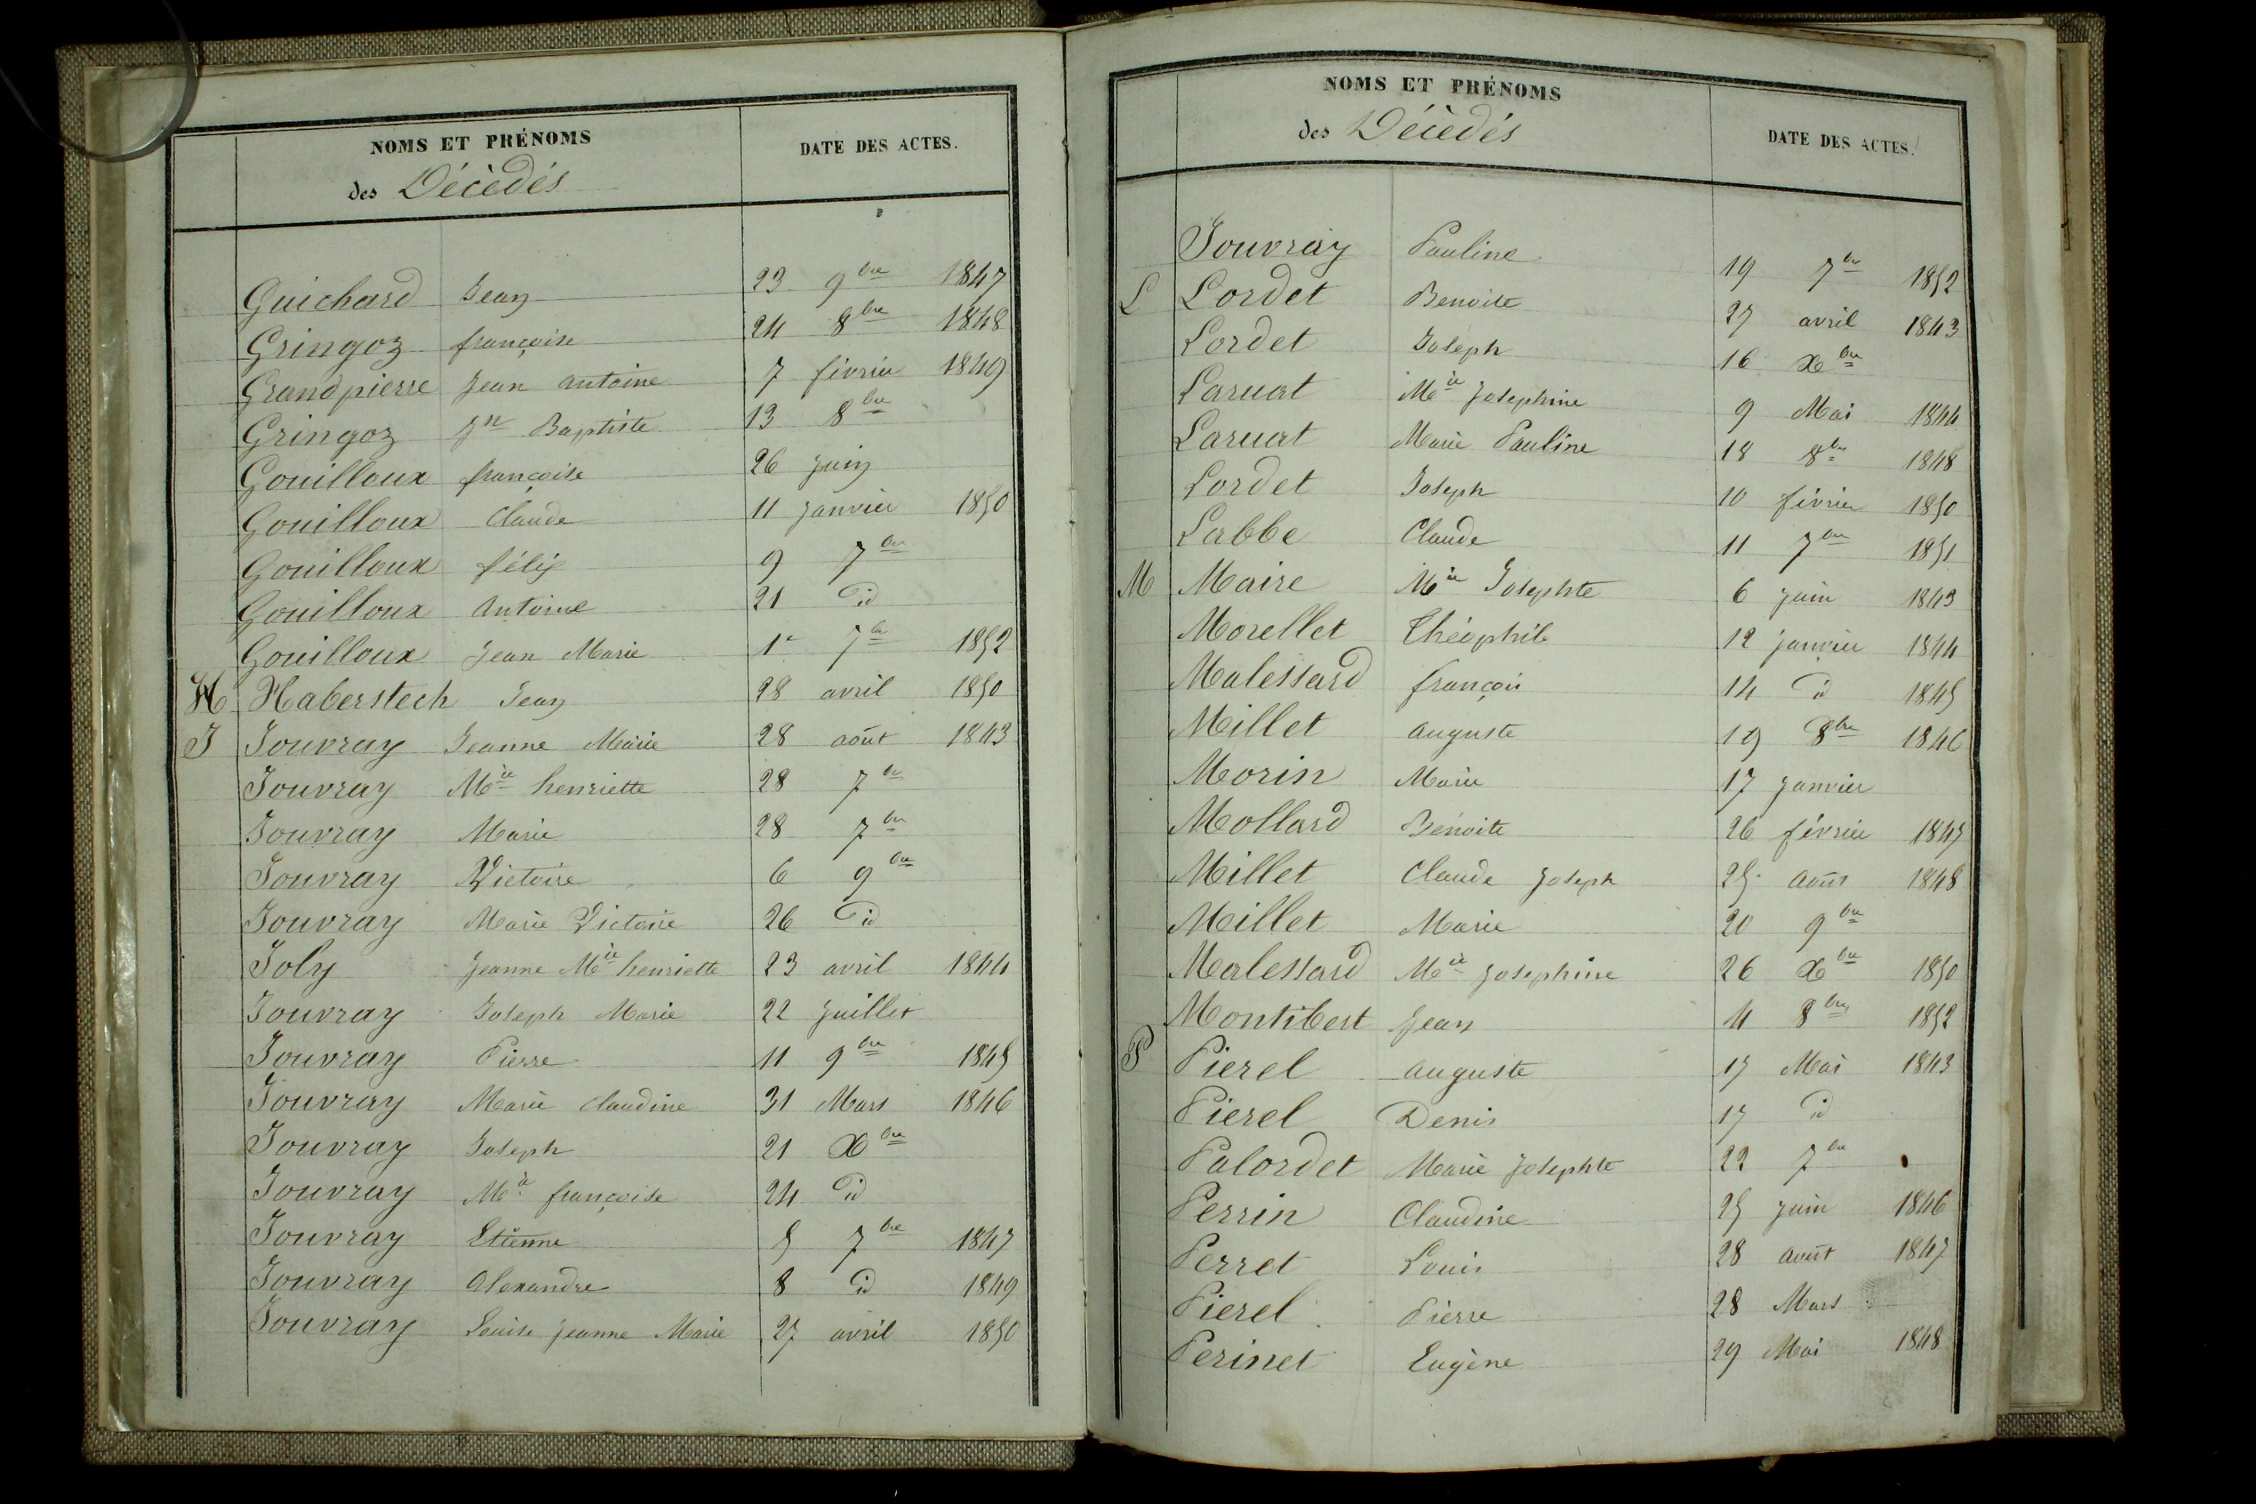 NOMS ET PRÉNOMS
des Décèdés
DATE DES ACTES.
Guichard Jean 23 9bre 1847
Gringoz françoise 24 8bre 1848
Grandpierre Jean antoine 7 février 1849
Gringoz Jn Baptiste 13 8bre
Gouilloux françoise 26 Juin
Gouilloux Claude 11 Janvier 1850
Gouilloux félix 9 7bre
Gouilloux Antoine 21 id
Gouilloux Jean Marie 1er 7bre 1852
H Haberstech Jean 28 avril 1850
J Jouvray Jeanne Marie 28 août 1843
Jouvray Mie henriette 28 7bre
Jouvray Marie 28 7bre
Jouvray Victoire 6 9bre
Jouvray Marie Victoire 26 id
Joly Jeanne Mie henriette 23 avril 1844
Jouvray Joseph Marie 22 Juillet
Jouvray Pierre 11 9bre 1845
Jouvray Marie Claudine 31 Mars 1846
Jouvray Joseph 21 Xbre
Jouvray Mie françoise 24 id
Jouvray Etienne 5 7bre 1847
Jouvray Alexandre 8 id 1849
Jouvray Louise Jeanne Marie 27 avril 1850
NOMS ET PRÉNOMS
des Décèdés
DATE DES ACTES.
Jouvray Pauline 19 7bre 1852
L Lordet Benoite 27 avril 1843
Lordet Joseph 16 Xbre
Laruat Mie Josephine 9 Mai 1844
Laruat Marie Pauline 18 8bre 1848
Lordet Joseph 10 février 1850
Labbe Claude 11 7bre 1851
M Maire Mie Josephte 6 Juin 1843
Morellet Théophile 12 Janvier 1844
Malessard françois 14 id 1845
Millet auguste 19 8bre 1846
Morin Marie 17 Janvier
Mollard Benoite 26 février 1847
Millet Claude Joseph 25 Août 1848
Millet Marie 20 9bre
Malessard Mie Josephine 26 Xbre 1850
Montibert Jean 4 8bre 1852
P Pierel auguste 17 Mai 1843
Pierel Denis 17 id
Palordet Marie Josephte 22 7bre
Perrin Claudine 25 Juin 1846
Perret Louis 28 août 1847
Pierel Pierre 28 Mars
Perinet Eugène 29 Mai 1848